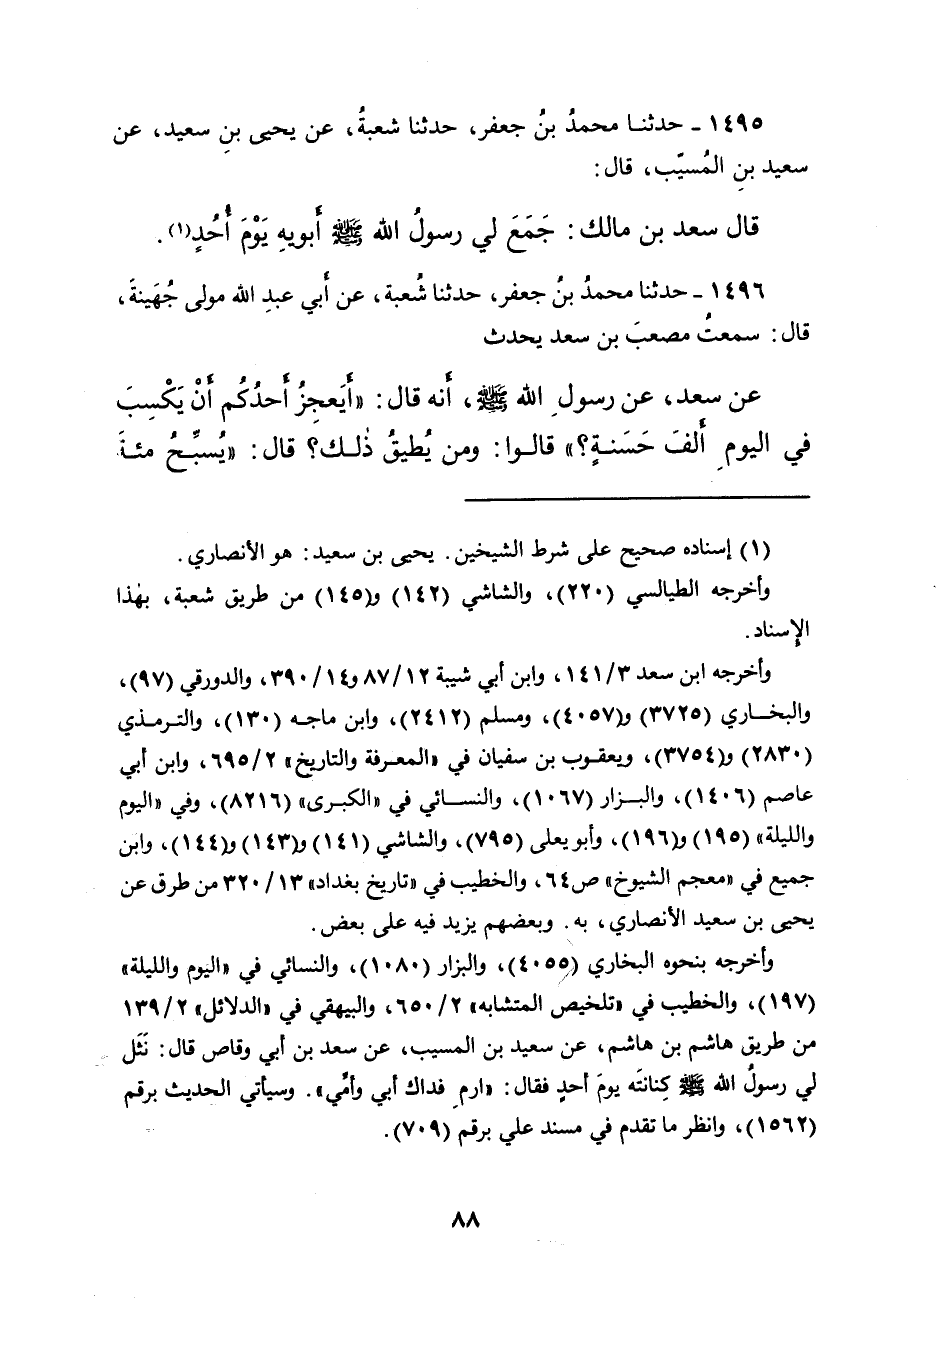 ١٤٩٥ ـ حدثنـا محمدُ بنُ جعفر، حدثنا شعبةُ، عن يحيى بنِ سعيد، عن
سعيد بنِ المُسيّب، قال:
قال سعد بن مالك: جَمَعَ لي رسولُ الله ﷺ أَبويهِ يَوْمَ أُحُدٍ(١).
١٤٩٦ ـ حدثنا محمدُ بنُ جعفر، حدثنا شُعبة، عن أَبي عبدِ الله مولى جُهَينةَ،
قال: سمعتُ مصعبَ بن سعد يحدث
عن سعد، عن رسولِ الله ﷺ، أَنه قال: «أَيَعجِزُ أَحدُكُم أَنْ يَكْسِبَ
في اليومِ أَلفَ حَسَنـةٍ؟» قالـوا: ومن يُطيقُ ذٰلـك؟ قال: «يُسبِّـحُ مئـةَ
(١) إسناده صحيح على شرط الشيخين. يحيى بن سعيد: هو الأنصاري.
وأخرجه الطيالسي (٢٢٠)، والشاشي (١٤٢) و(١٤٥) من طريق شعبة، بهٰذا
الإسناد.
وأخرجه ابن سعد ١٤١/٣، وابن أبي شيبة ٨٧/١٢ و٣٩٠/١٤، والدورقي (٩٧)،
والبخـاري (٣٧٢٥) و(٤٠٥٧)، ومسلم (٢٤١٢)، وابن ماجـه (١٣٠)، والتـرمـذي
(٢٨٣٠) و(٣٧٥٤)، ويعقـوب بن سفيان في «المعـرفة والتاريخ» ٦٩٥/٢، وابن أبي
عاصم (١٤٠٦)، والبـزار (١٠٦٧)، والنسـائي في «الكبرى» (٨٢١٦)، وفي «اليوم
والليلة» (١٩٥) و(١٩٦)، وأبو يعلى (٧٩٥)، والشاشي (١٤١) و(١٤٣) و(١٤٤)، وابن
جميع في «معجم الشيوخ» ص٦٤، والخطيب في «تاريخ بغداد» ٣٢٠/١٣ من طرق عن
يحيى بن سعيد الأنصاري، به. وبعضهم يزيد فيه على بعض.
وأخرجه بنحوه البخاري (٤٠٥٥)، والبزار (١٠٨٠)، والنسائي في «اليوم والليلة»
(١٩٧)، والخطيب في «تلخيص المتشابه» ٦٥٠/٢، والبيهقي في «الدلائل» ١٣٩/٢
من طريق هاشم بن هاشم، عن سعيد بن المسيب، عن سعد بن أبي وقاص قال: نَثَل
لي رسولُ الله ﷺ كِنانتَه يومَ أحدٍ فقال: «ارمِ فداك أبي وأمِّي». وسيأتي الحديث برقم
(١٥٦٢)، وانظر ما تقدم في مسند علي برقم (٧٠٩).
٨٨